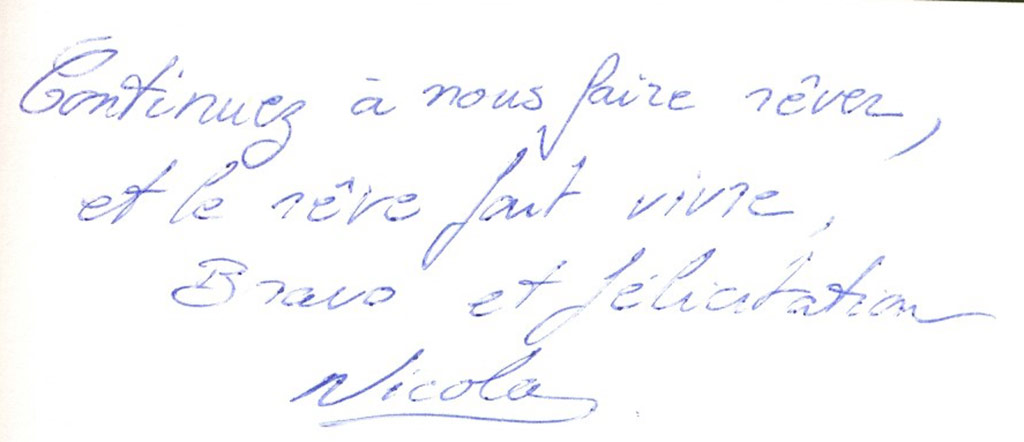 Continuez à nous faire rêver,
et le rêve fait vivre,
Bravo et félicitation
Nicolas